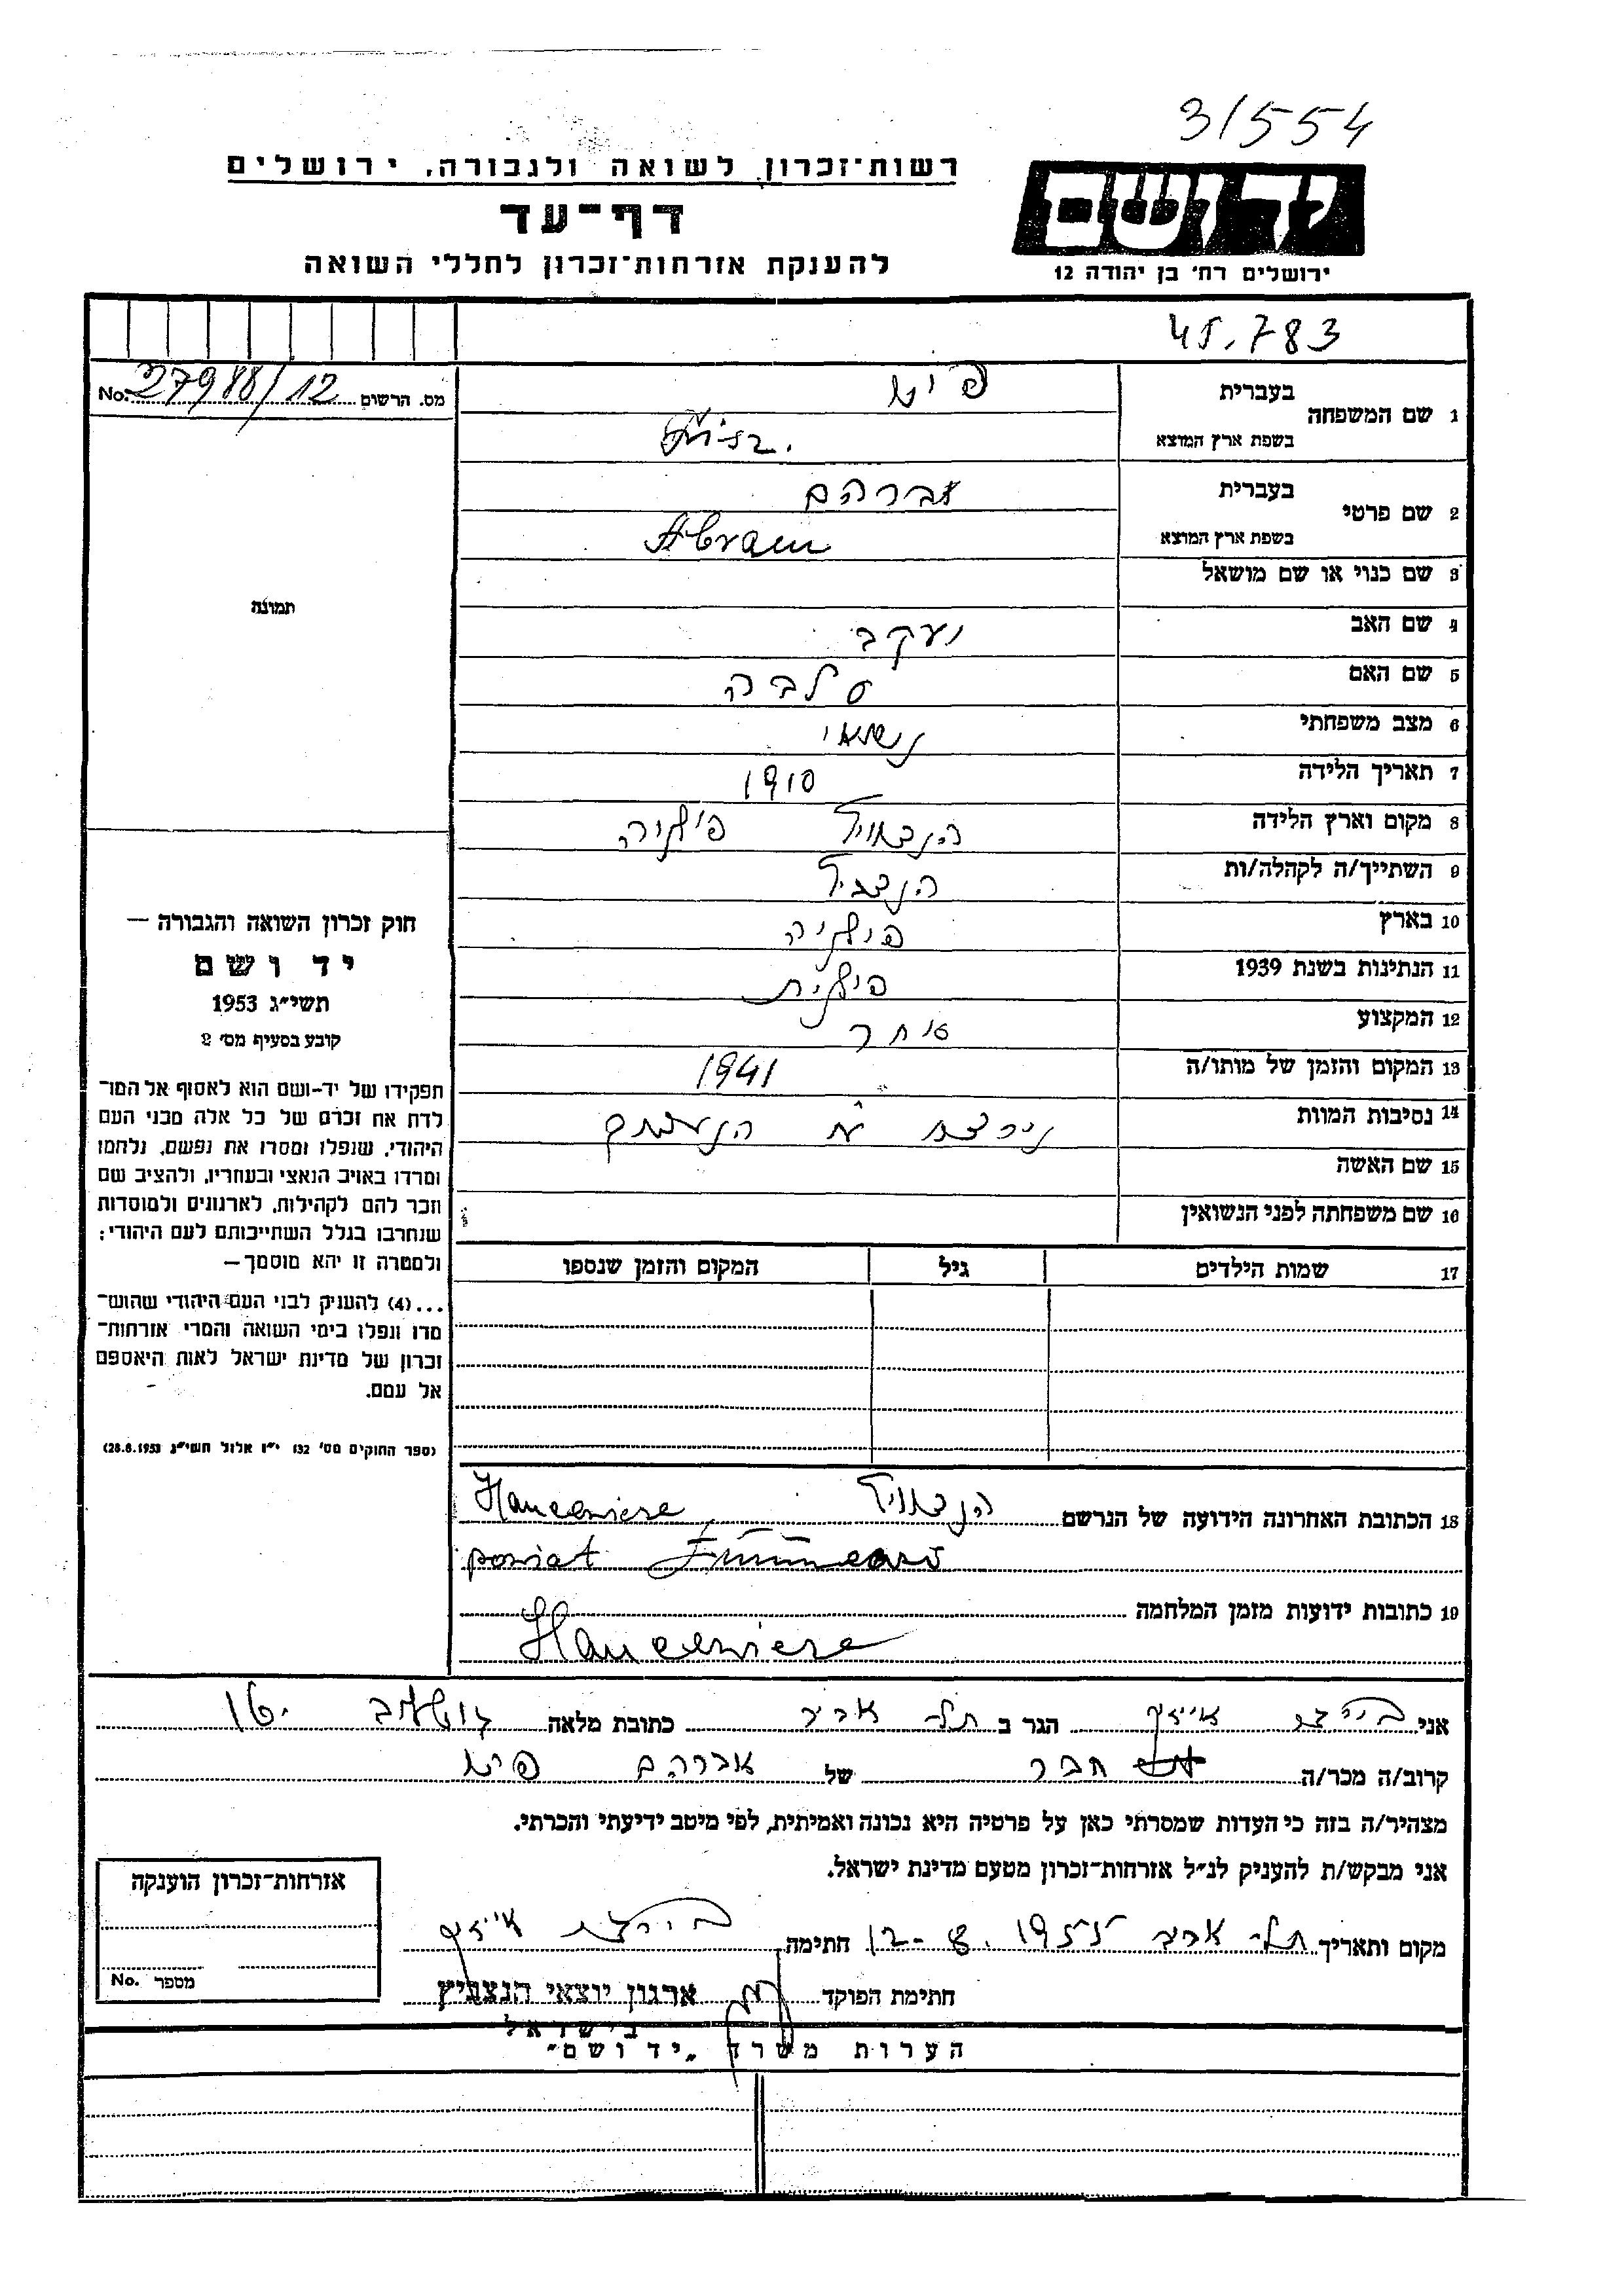 31554
רשות־זכרון לשואה ולגבורה, ירושלים
דף־עד
להענקת אזרחות־זכרון לחללי השואה
יד ושם
ירושלים רח' בן יהודה 12
45.783
מס. הרשום 27988/12 No.
תמונה
חוק זכרון השואה והגבורה —
יד ושם
תשי״ג 1953
קובע בסעיף מס׳ 2
תפקידו של יד-ושם הוא לאסוף אל המו־
לדת את זכרם של כל אלה מבני העם
היהודי, שנפלו ומסרו את נפשם, נלחמו
ומרדו באויב הנאצי ובעוזריו, ולהציב שם
וזכר להם לקהילות, לארגונים ולמוסדות
שנחרבו בגלל השתייכותם לעם היהודי;
ולמטרה זו יהא מוסמך—
...(4) להעניק לבני העם היהודי שהוש־
מדו ונפלו בימי השואה והמרי אזרחות־
זכרון של מדינת ישראל לאות היאספם
אל עמם.
(ספר החוקים מס׳ 132 י״ז אלול תשי״ג 28.8.1953)
1 שם המשפחה
בעברית
בשפת ארץ המוצא
2 שם פרטי
בעברית אברהם
בשפת ארץ המוצא Abram
3 שם כנוי או שם מושאל
4 שם האב יעקב
5 שם האם
6 מצב משפחתי נשואי
7 תאריך הלידה 1910
8 מקום וארץ הלידה פולניה
9 השתייך/ה לקהלה/ות
10 בארץ פולניה
11 הנתינות בשנת 1939 פולנית
12 המקצוע סוחר
13 המקום והזמן של מותו/ה 1941
14 נסיבות המוות
15 שם האשה
16 שם משפחתה לפני הנשואין
17 שמות הילדים גיל המקום והזמן שנספו
18 הכתובת האחרונה הידועה של הנרשם
powiat
19 כתובות ידועות מזמן המלחמה
אני הגר ב תל אביב כתובת מלאה
קרוב/ה מכר/ה חבר של אברהם
מצהיר/ה בזה כי העדות שמסרתי כאן על פרטיה היא נכונה ואמיתית, לפי מיטב ידיעתי והכרתי.
אני מבקש/ת להעניק לנ״ל אזרחות־זכרון מטעם מדינת ישראל.
מקום ותאריך תל אביב 12-8.1955 חתימה
חתימת הפוקד ארגון יוצאי הנצביץ
בישראל
אזרחות־זכרון הוענקה
מספר No.
הערות משרד „יד ושם״